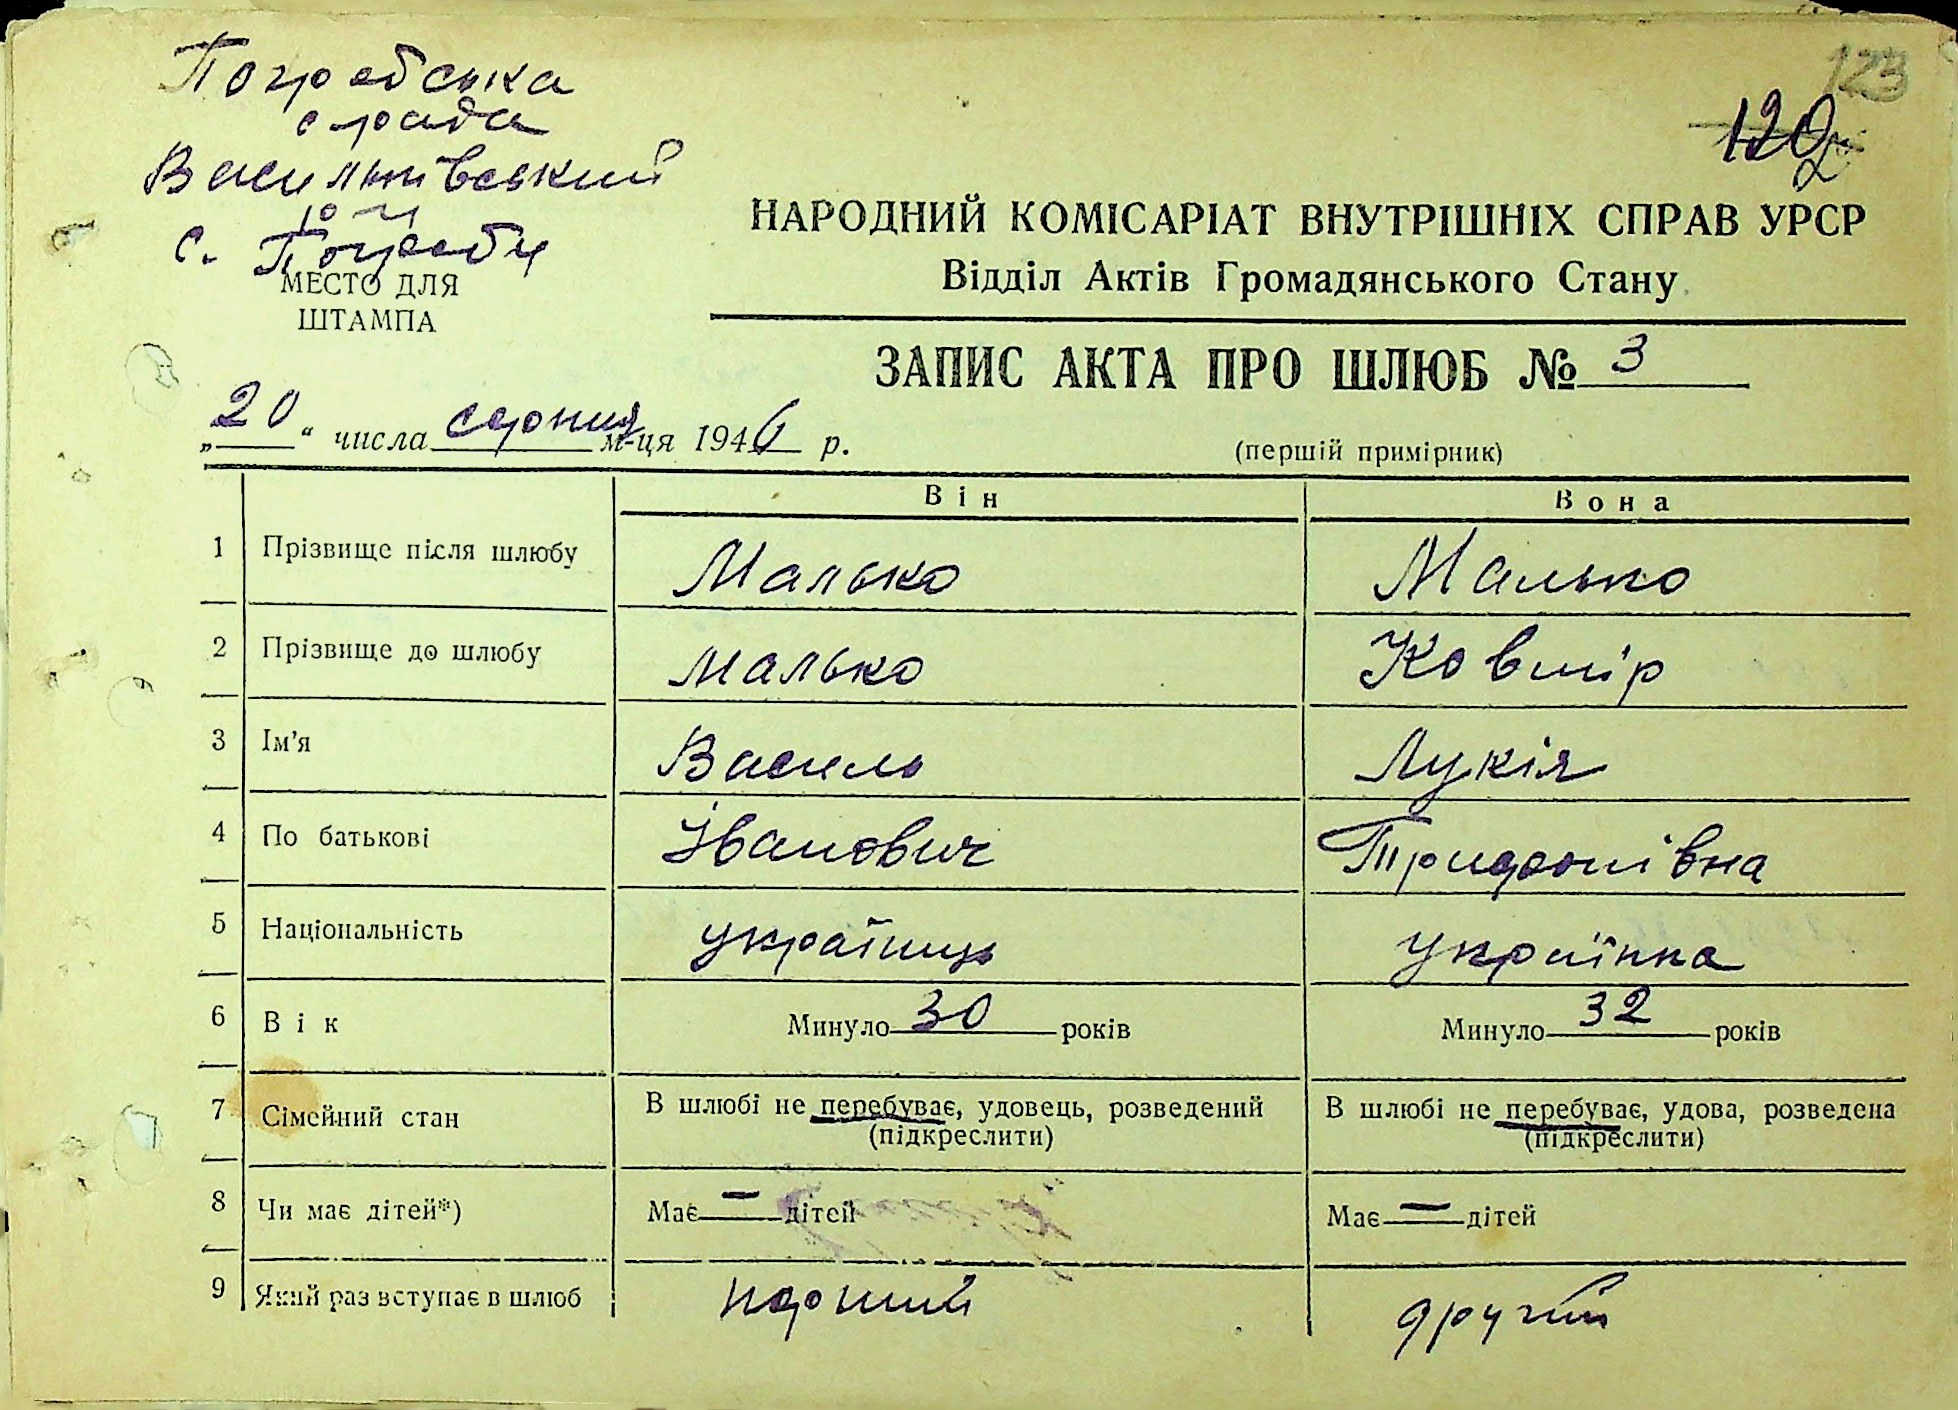 123
120
Погребська
с рада
Васильківський
р-н
с. Погреби
МЕСТО ДЛЯ
ШТАМПА
НАРОДНИЙ КОМІСАРІАТ ВНУТРІШНІХ СПРАВ УРСР
Відділ Актів Громадянського Стану
ЗАПИС АКТА ПРО ШЛЮБ № 3
„20“ числа серпня м-ця 1946 р.
(першій примірник)
Він Вона
1 Прізвище після шлюбу Малько Малько
2 Прізвище до шлюбу Малько Ковшір
3 Ім'я Василь Лукія
4 По батькові Іванович Трифонівна
5 Національність українць українка
6 Вік Минуло 30 років Минуло 32 років
7 Сімейний стан В шлюбі не перебуває, удовець, розведений (підкреслити) В шлюбі не перебуває, удова, розведена (підкреслити)
8 Чи має дітей*) Має — дітей Має — дітей
9 Який раз вступає в шлюб перший другий